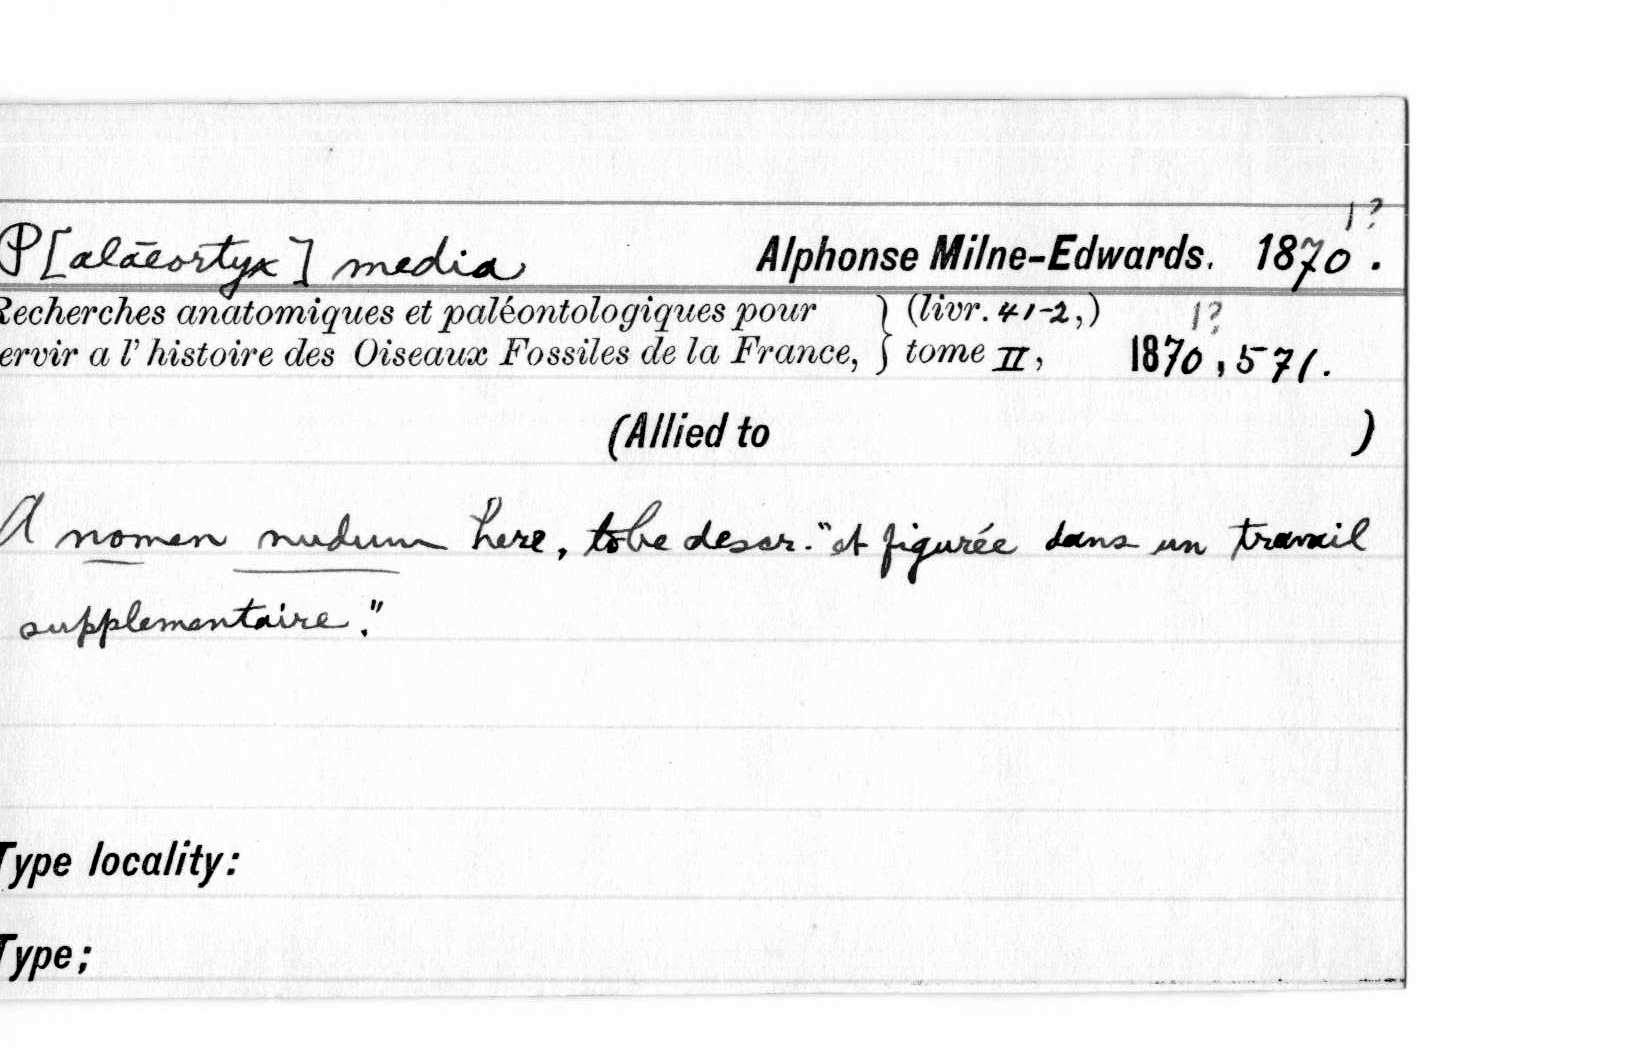 1?
P[alaeortyx] media Alphonse Milne-Edwards. 1870.
Recherches anatomiques et paléontologiques pour } (livr. 41-2,) 1?
ervir a l' histoire des Oiseaux Fossiles de la France, } tome II, 1870, 571.
(Allied to )
A nomen nudum here, to be descr. "et figurée dans un travail
supplementaire."
Type locality:
Type;